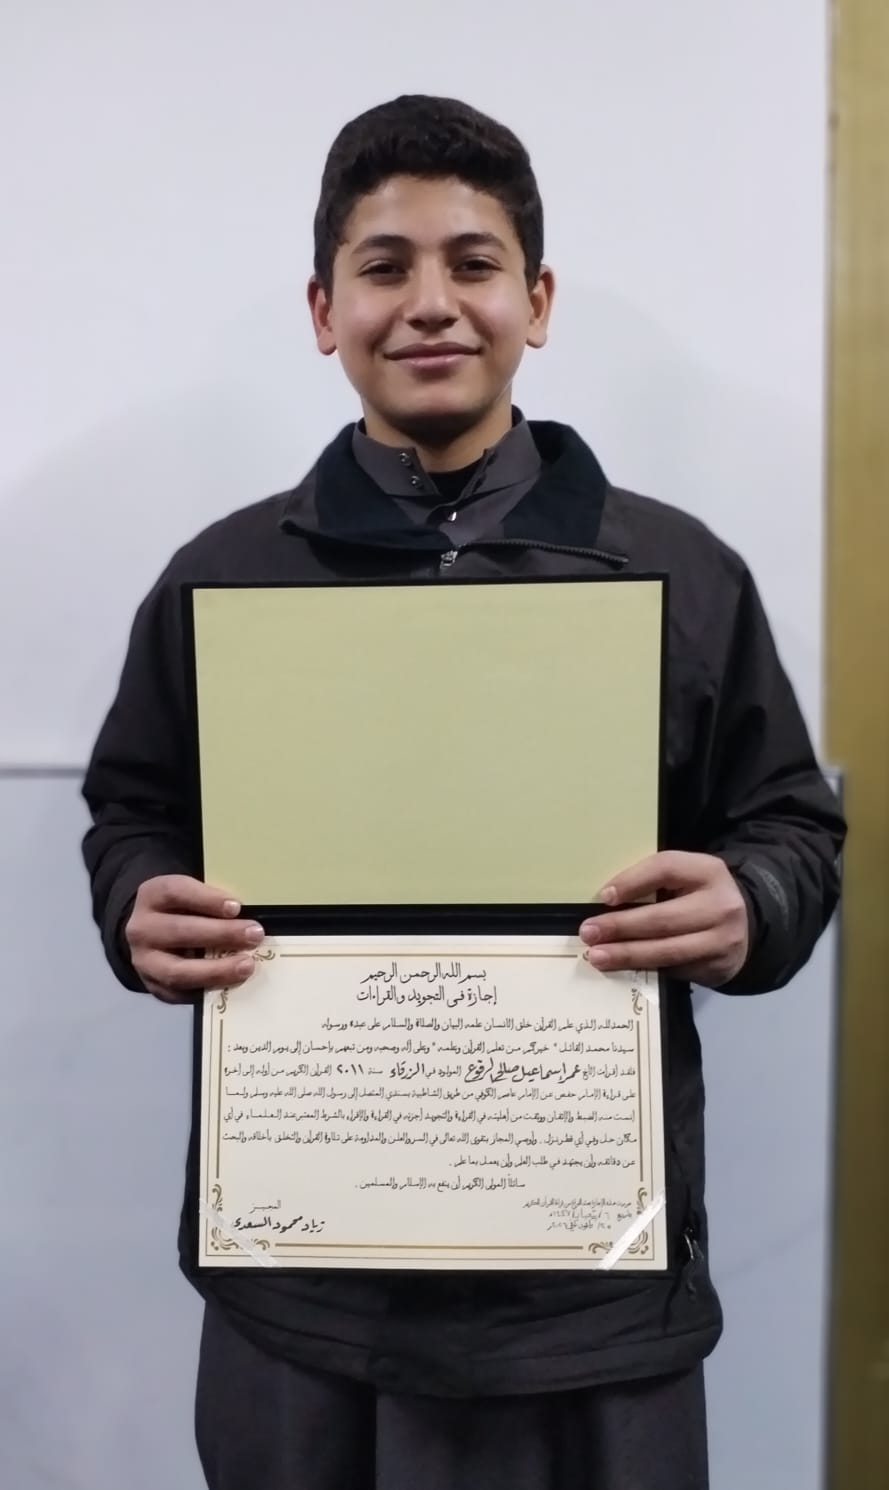 بسم الله الرحمن الرحيم
إجازة في التجويد والقراءات
الحمد لله الذي علم القرآن خلق الانسان علمه البيان والصلاة والسلام على عبده ورسوله
سيدنا محمد القائل " خيركم من تعلم القرآن وعلمه " وعلى آله وصحبه ومن تبعهم بإحسان إلى يوم الدين وبعد :
فلقد أقرأت الأخ عمر إسماعيل صالح المولود في الزرقاء سنة ٢٠١١ القرآن الكريم من أوله إلى آخره
على قراءة الإمام حفص عن الإمام عاصم الكوفي من طريق الشاطبية بسندي المتصل إلى رسول الله صلى الله عليه وسلم ولما
آنست منه الضبط والإتقان ووثقت من أهليته في القراءة والتجويد أجزته في القراءة والإقراء بالشرط المعتبر عند العلماء في أي
مكان حل وفي أي قطر نزل . وأوصي المجاز بتقوى الله تعالى في السر والعلن والمداومة على تلاوة القرآن والتخلق بأخلاقه والبحث
عن دقائقه وأن يجتهد في طلب العلم وأن يعمل بما علم .
سائلاً المولى الكريم أن ينفع به الإسلام والمسلمين .
المجيز
زياد محمود السعدي